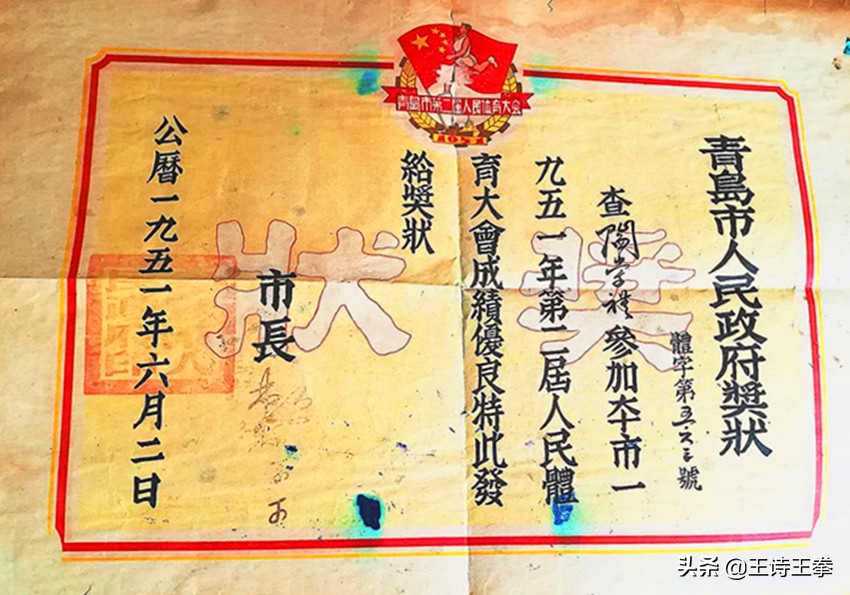 青島市第二屆人民体育大会
1951
青島市人民政府獎狀
體字第五六三號
查陶学禮參加本市一
九五一年第二屆人民體
育大會成績優良特此發
給獎狀
市長
公曆一九五一年六月二日
獎狀
头条 @王诗王拳